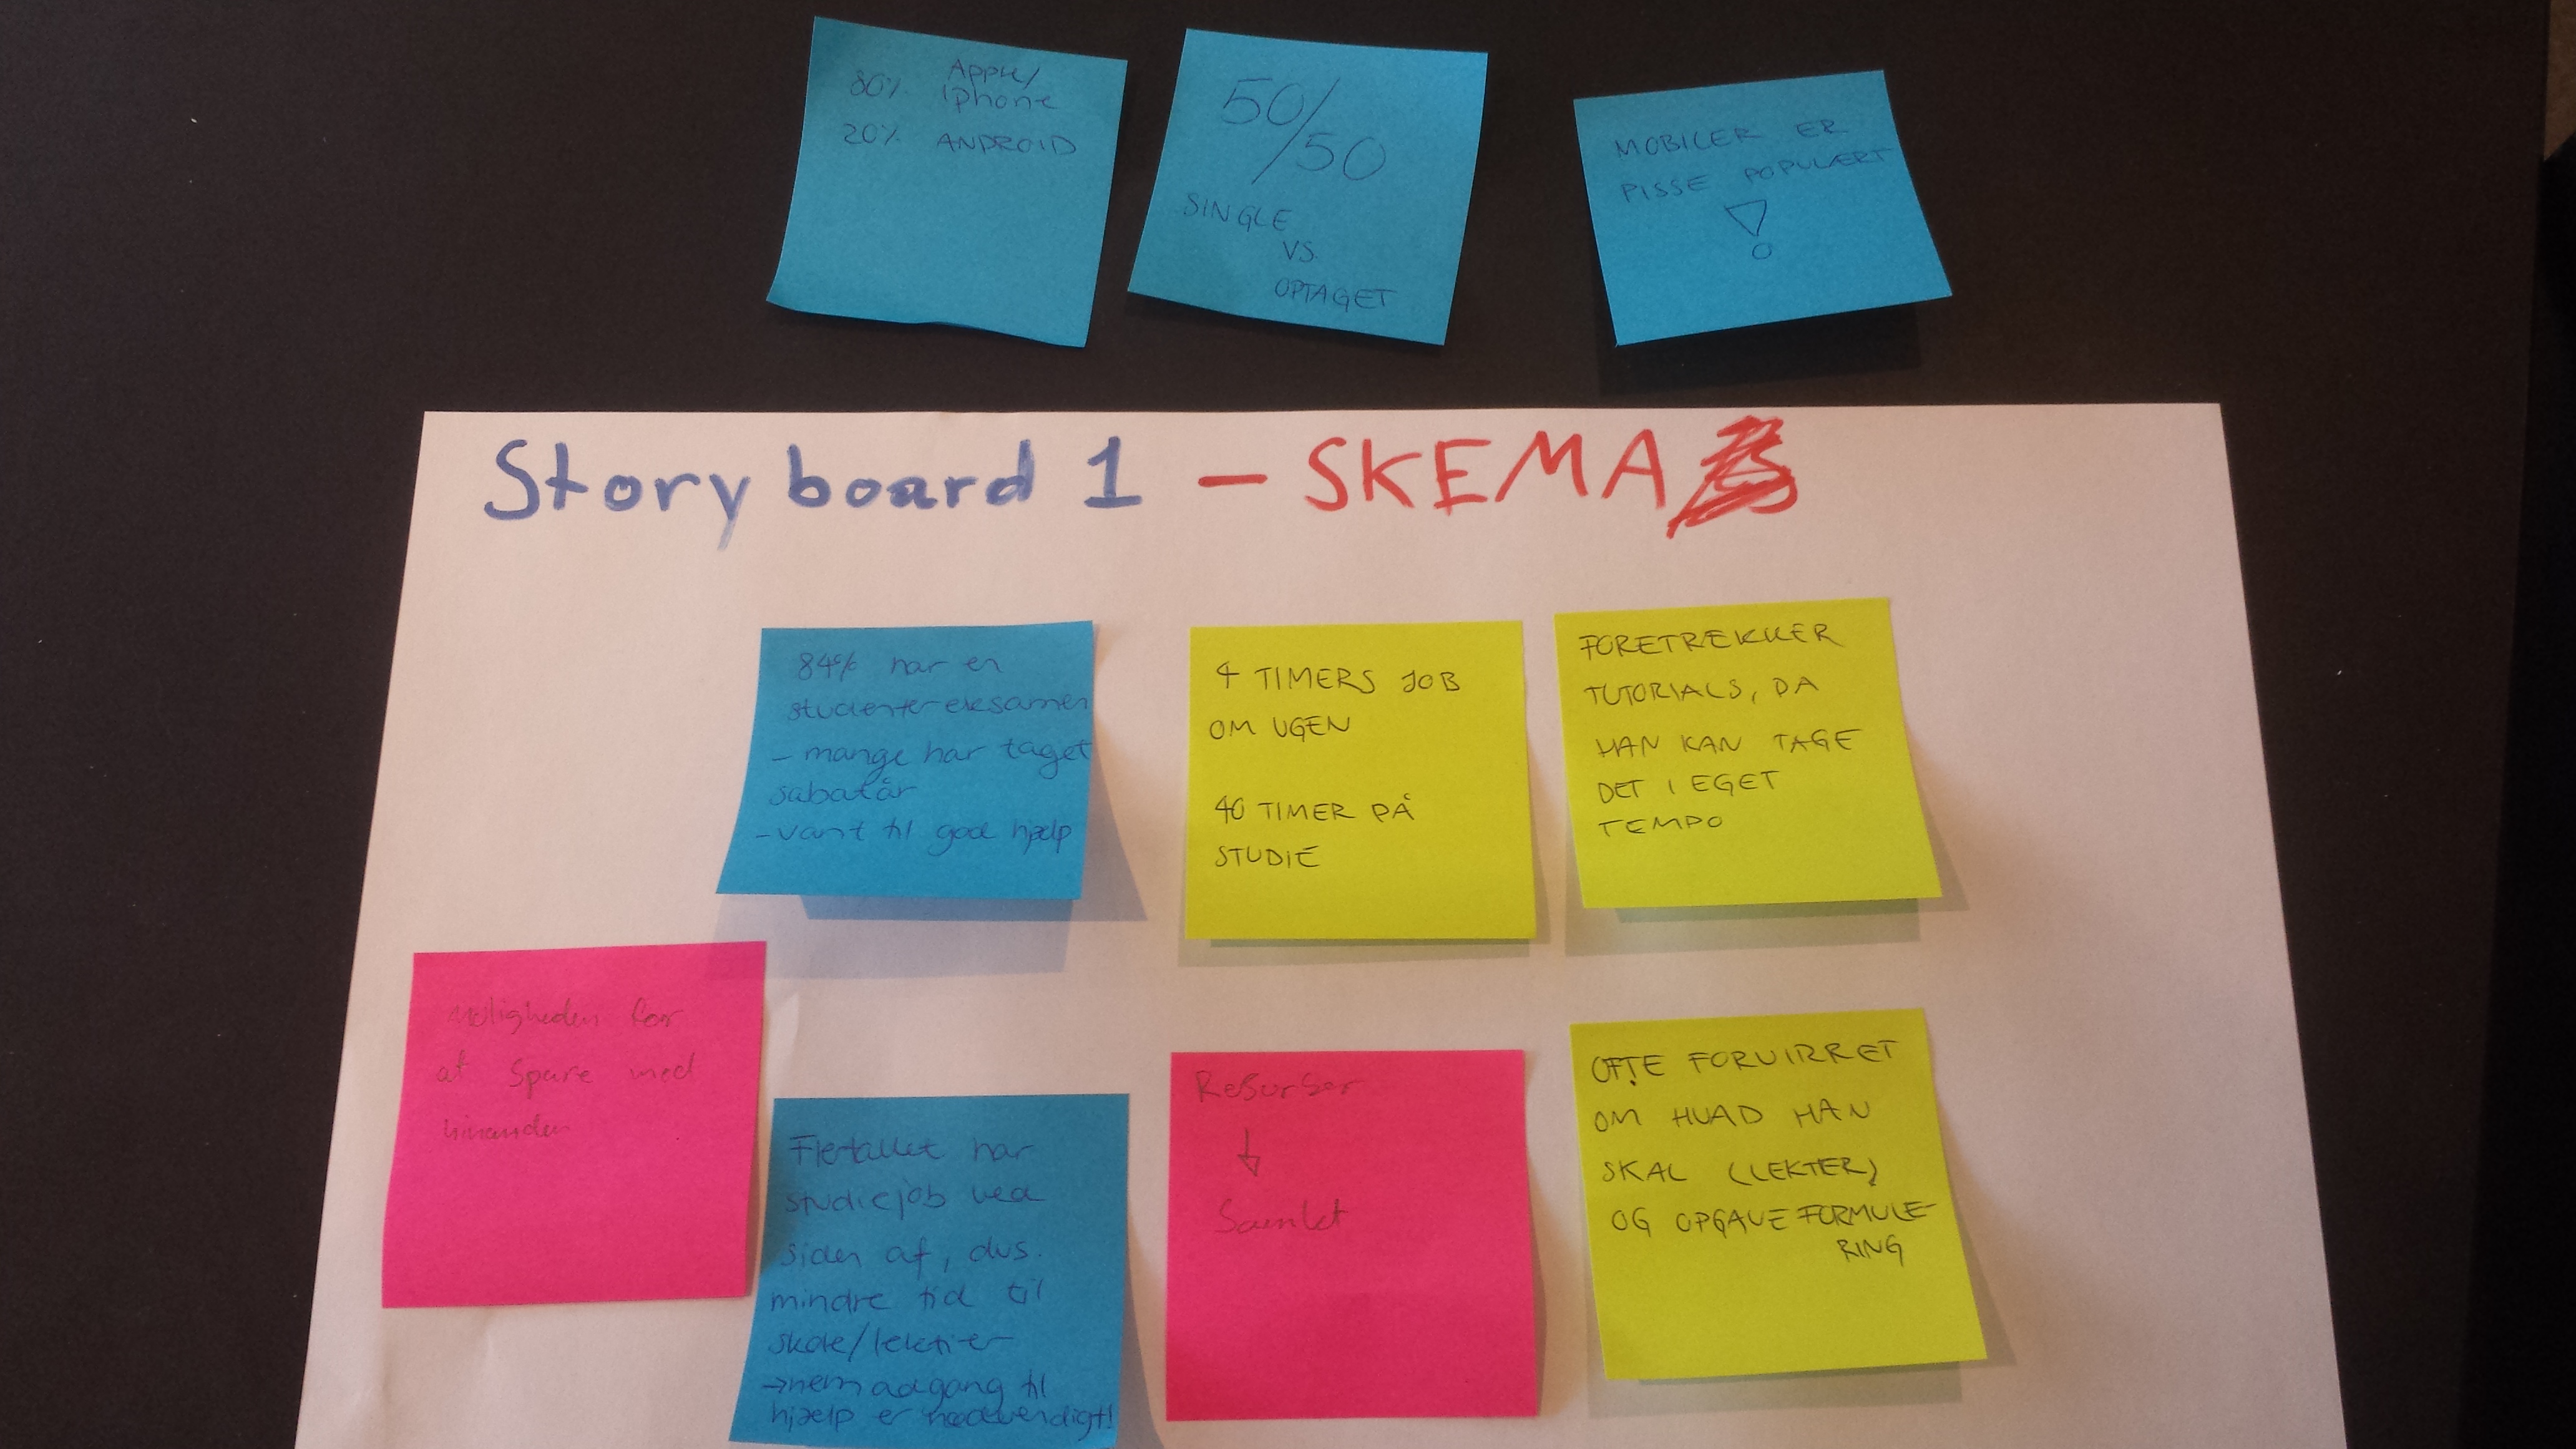 80% Apple/
iphone
20% ANDROID
50/50
SINGLE
VS.
OPTAGET
MOBILER ER
PISSE POPULÆRT
!
Story board 1 - SKEMA
84% har en
studentereksamen
- mange har taget
sabatår
- vant til god hjælp
4 TIMERS JOB
OM UGEN
40 TIMER PÅ
STUDIE
FORETRÆKKER
TUTORIALS, DA
HAN KAN TAGE
DET I EGET
TEMPO
muligheden for
at spare med
hinanden
Flertallet har
studiejob ved
siden af, dvs.
mindre tid til
skole/lektier
→ nem adgang til
hjælp er nødvendigt!
Resurser
↓
Samlet
OFTE FORVIRRET
OM HVAD HAN
SKAL (LEKTER)
OG OPGAVEFORMULE-
RING